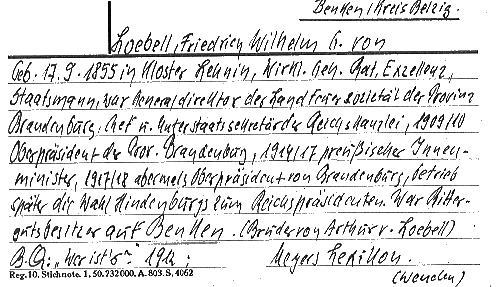 Benken/Kreis Belzig.
Loebell, Friedrich Wilhelm G. von
Geb. 17.9.1855 in Kloster Lehnin, Wirkl. Geh. Rat, Exzellenz,
Staatsmann, war Generaldirektor der Landfeuersocietät der Provinz
Brandenburg, Chef u. Unterstaatssekretär der Reichskanzlei, 1909/10
Oberpräsident der Prov. Brandenburg, 1914/17 preußischer Innen-
minister, 1917/18 abermals Oberpräsident von Brandenburg, betrieb
später die Wahl Hindenburgs zum Reichspräsidenten. War Ritter-
gutsbesitzer auf Benken. (Bruder von Arthur v. Loebell)
B.Q.: „Wer ist's" 1912; Meyers Lexikon.
Reg. 10. Stichnote. 1, 50. 732000. A. 803. S. 4062
(Wenden)